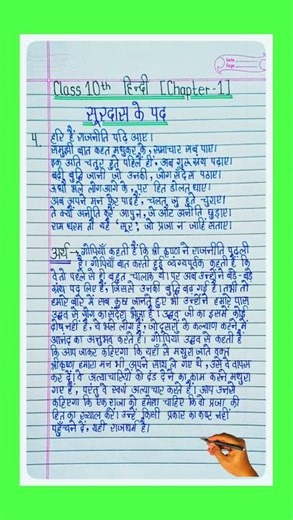 Class 10th हिन्दी [Chapter-1]
सूरदास के पद
4. हरि हैं राजनीति पढ़ि आए।
समुझी बात कहत मधुकर के, समाचार सब पाए।
इक अति चतुर हुते पहिलैं हीं, अब गुरु ग्रंथ पढ़ाए।
बढ़ी बुद्धि जानी जो उनकी, जोग सँदेस पठाए।
ऊधौ भले लोग आगे के, पर हित डोलत धाए।
अब अपने मन फेर पाइहैं, चलत जु हुते चुराए।
ते क्यौं अनीति करैं आपुन, जे और अनीति छुड़ाए।
राज धरम तौ यहै 'सूर', जो प्रजा न जाहिं सताए।
अर्थ → गोपियाँ कहती हैं कि श्री कृष्ण ने राजनीति पढ़ ली
है। गोपियाँ बात करती हुई व्यंग्यपूर्वक कहती हैं कि
वे तो पहले से ही बहुत चालाक थे पर अब उन्होंने बड़े-बड़े
ग्रंथ पढ़ लिए हैं, जिससे उनकी बुद्धि बढ़ गई है। तभी तो
हमारे बारे में सब कुछ जानते हुए भी उन्होंने हमारे पास
उद्धव से योग का संदेश भेजा है। उद्धव जी का इसमें कोई
दोष नहीं है, वे भले लोग हैं, जो दूसरों के कल्याण करने में
आनंद का अनुभव करते हैं। गोपियाँ उद्धव से कहती हैं
कि आप जाकर कहिएगा कि यहाँ से मथुरा जाते वक्त
श्रीकृष्ण हमारा मन भी अपने साथ ले गए थे, उसे वे वापस
कर दें। वे अत्याचारियों को दंड देने का काम करने मथुरा
गए हैं, परंतु वे स्वयं अत्याचार करते हैं। आप उनसे
कहिएगा कि एक राजा को हमेशा चाहिए कि वो प्रजा की
हित का ख्याल करे। उन्हें किसी प्रकार का कष्ट नहीं
पहुँचने दें, यही राजधर्म है।